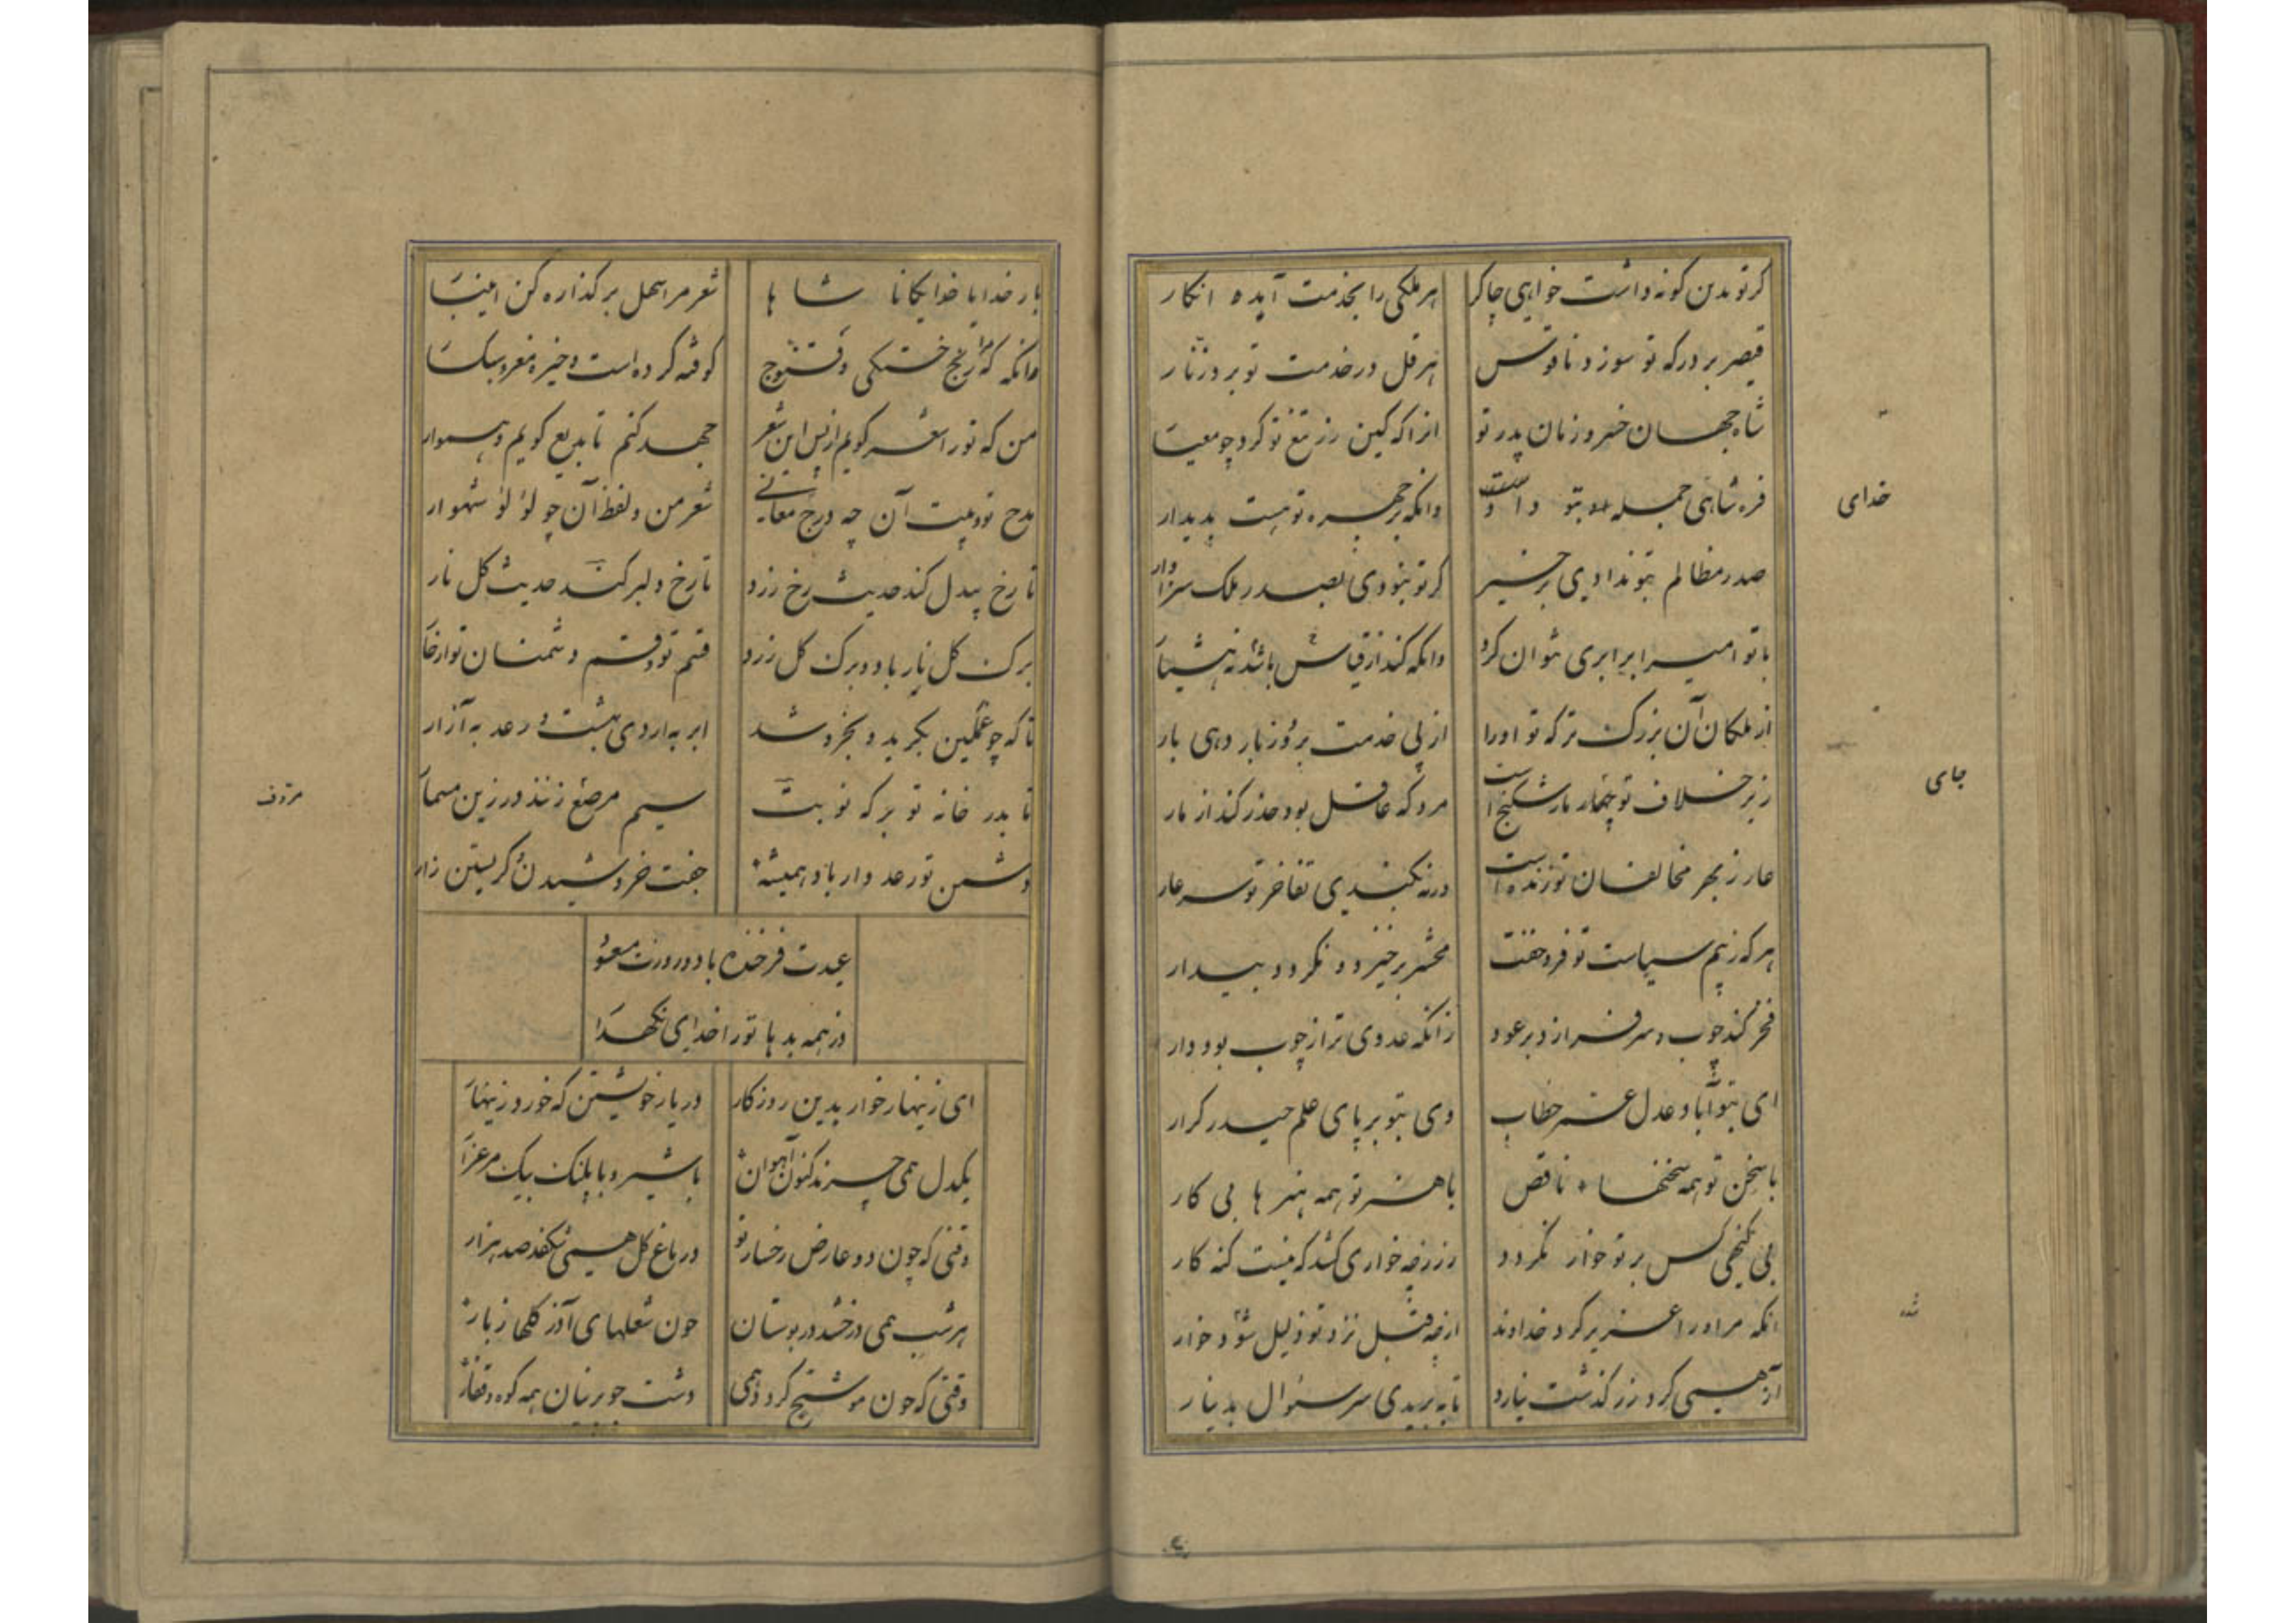 کر تو بدین کونه داشت خواهی چاکر
هر ملکی را بخدمت آیده انکار
قیصر بر درکه تو سوزد ناقوس
هرقل در خدمت تو برد زنار
شاه جهان خسرو زمان پدر تو
فره شاهی جمله بتو داد
وانکه بر چهره تو هست پدیدار
صدر مظالم بتو ندادی بر خیر
کر تو نبودی بصدر ملک سزاوار
با تو امیرا برابری نتوان کرد
وانکه کند از قیاس باشد نه هشیا
از ملکان آن بزرک تر که تو اورا
از پی خدمت بروز بار دهی بار
زیر خلاف تو بار شکنج است
مرد که عاقل بود حذر کند از مار
عار ز بهر مخالفان تو زنده است
ورنه نکندی تفاخر تو سر عار
هر که ز بیم سیاست تو فرو خفت
محشر برخیزد و نکردد بیدار
فخر کند چوب و سر فرازد بر عود
زانکه عدوی ترا ز چوب بود دار
ای بتو آباد عدل عمر خطاب
وی بتو بر پای علم حیدر کرار
با سخن تو همه سخنها ناقص
با هنر تو همه هنر ها بی کار
بی کنهی کس بر تو خوار نکردد
زر ز چه خواری کشد که نیست کنه کار
انکه مر اورا عزیز کرد خداوند
از چه قبل نزد تو ذلیل شود و خوار
آز همی کرد زر کذشت نیارد
تا به بریدی سر سئوال بدینار
خدای
جای
بار خدایا خدایکانا شاها
شعر مرا سهل بر کذاره کن اینبا
وانکه که مرا رنج خستکی
کوفته کرده است و خیره مغز و سبکسا
من که تو را شعر کویم از پس این شعر
جهد کنم تا بدیع کویم و هموار
مدح تو و بیت آن چه درج معانی
شعر من و لفظ آن چو لؤلؤ شهوار
تا رخ بیدل کند حدیث رخ زرد
تا رخ دلبر کند حدیث کل نار
برک کل نار باد و برک کل زرد
قسم تو و قسم دشمنان تو از خا
تا که چو غمکین بکرید و بخروشد
ابر به اردی بهشت و رعد به آزار
تا بدر خانه تو بر که نوبت
سیم مرصع زنند و زرین مسما
دشمن تو رعد وار باد همیشه
جفت خروشیدن و کریستن زار
عیدت فرخنده باد و روزت معمو
وز همه بد ها تورا خدای نکهدا
ای زینهار خوار بدین روزکار
در یار خویشتن که خورد زینها
یکدل همی چرند کنون آهوان
با شیر و با پلنک بیک مرغزا
وقتی که چون دو عارض رخسار تو
در باغ کل همی شکفد صد هزار
هر شب همی درخشد در بوستان
چون شعلهای آذر کلها ز بار
وقتی که چون موشح کردد همی
دشت چو پرنیان همه کوه و قفار